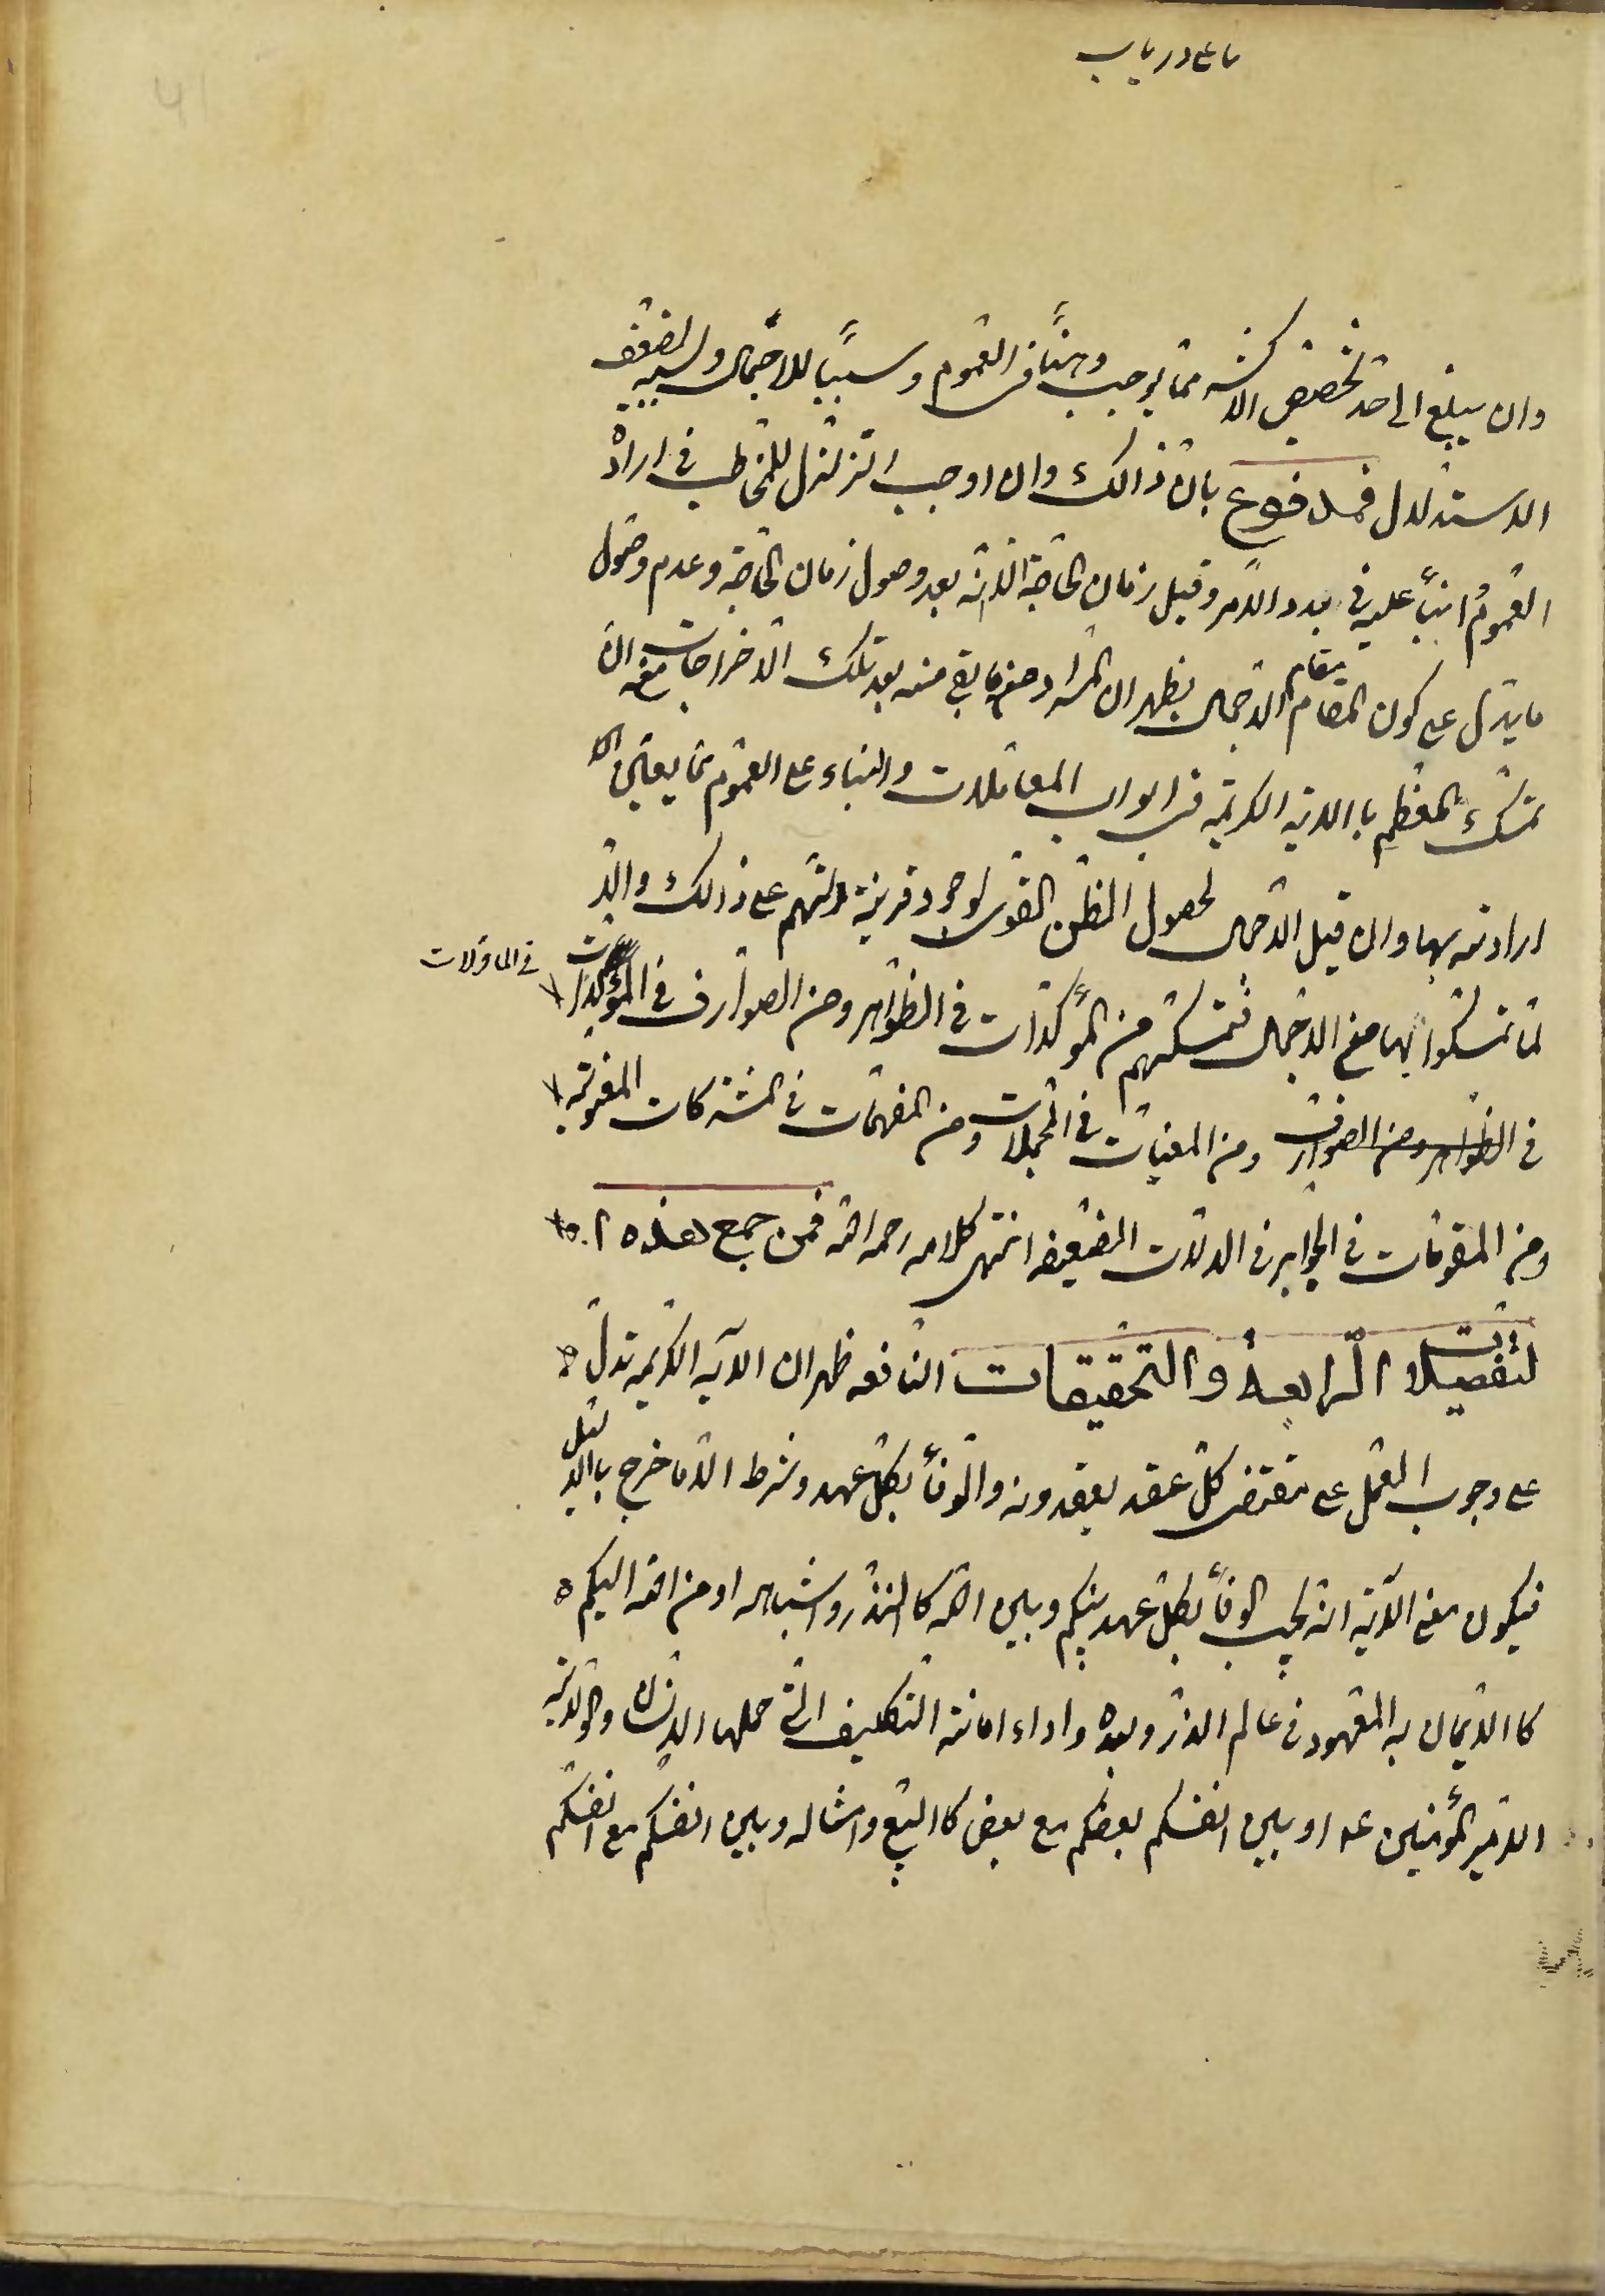 وان يبلغ الى حد تخصيص الاكثر مما يوجب وهناً فى العموم وسبباً للاجمال ولسببيه لضعف
الاستدلال فمدفوع بان ذالك وان اوجب التزلزل للمخاطب فى ارادة
العموم ابتدأ عليه فى بدو الامر وقبل زمان الحاجة الا انه بعد وصول زمان الحاجة وعدم وصول
ما يدل على كون المقام مقام الاجمال يظهر ان المراد منه ما بقى منه بعد تلك الاخراجات مع ان
تمسك المعظم باالاية الكريمة فى ابواب المعاملات والبناء على العموم مما يعين
ارادته بها وان قيل الاجمال لحصول الظن القوى لوجود قرينة دلتهم على ذالك والا
لما تمسكوا بها مع الاجمال فتمسكهم من المؤكدات فى الظواهر ومن الصوارف فى
فى الماولات
ومن المعينات فى المجملات ومن المفهمات فى المشتركات المعنوية
ومن المقومات فى الجوابر فى الدلالات الضعيفه انتهى كلامه رحمه الله فمن جمع هذه
لتفصيلات الرابعة والتحقيقات النافعه ظهر ان الايه الكريمه تدل
على وجوب العمل على مقتضى كل عقد يعقدونه والوفأ بكل عهد وشرط الا ما خرج باالدليل
فيكون معنى الآية انه يجب الوفأ بكل عهد بينكم وبين الله كا النذر واشباهه او من الله اليكم
كا الايمان به المعهود فى عالم الذر وبعده واداء امانة التكليف التى حملها الانسان والولاية
لامير المؤمنين عه او بين انفسكم بعضكم مع بعض كا البيع وامثاله وبين انفسكم مع انفسكم